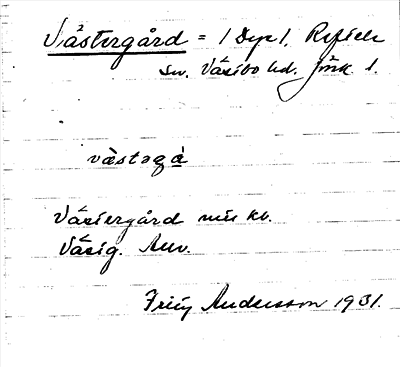 Västergård = 1 Dep 1. Reftele
sn. Västbo hd. Jönk l.
västəgá
Västergård mtl kb.
Västg. Anv.
Frey Andersson 1931.